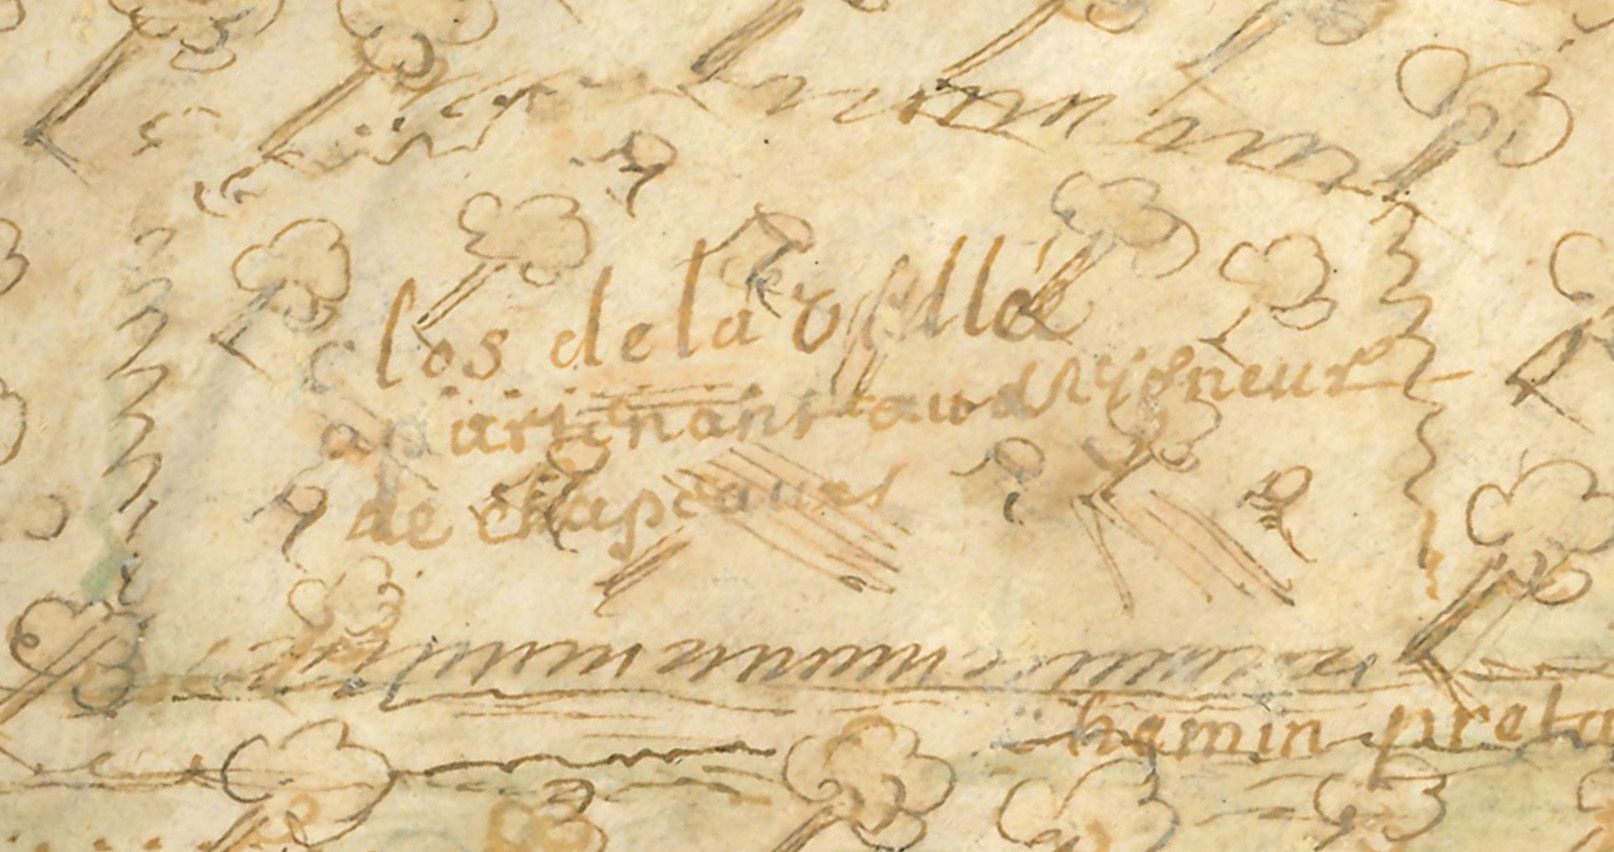 clos de la vieille
apartenant aud seigneur
de Chapeaues
chemin preta